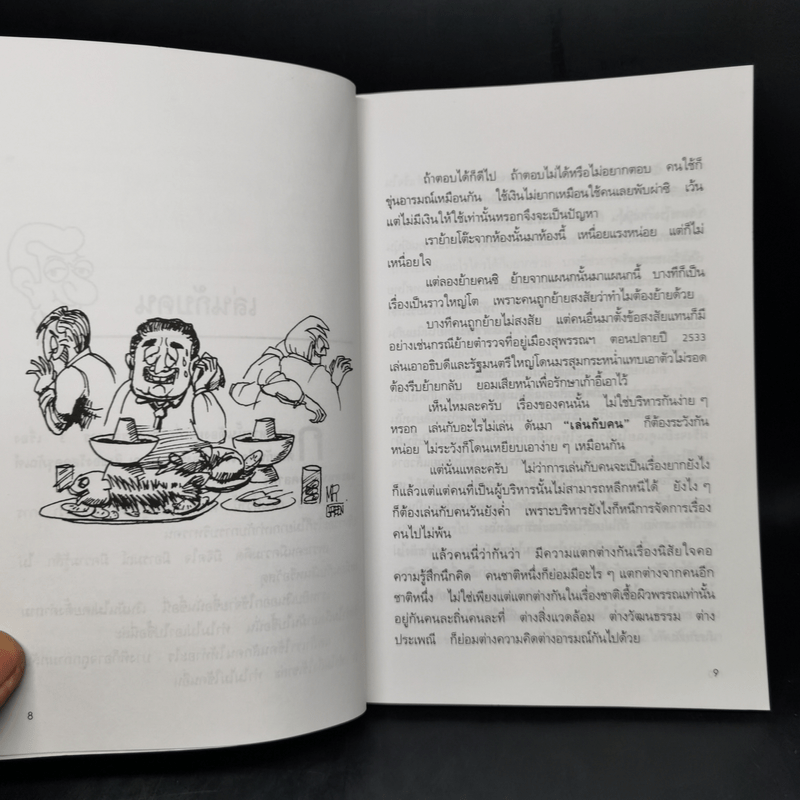 MR
GREEN
8
ถ้าตอบได้ก็ดีไป ถ้าตอบไม่ได้หรือไม่อยากตอบ คนใช้ก็
ขุ่นอารมณ์เหมือนกัน ใช้เงินไม่ยากเหมือนใช้คนเลยพับผ่าซิ เว้น
แต่ไม่มีเงินให้ใช้เท่านั้นหรอกจึงจะเป็นปัญหา
เราย้ายโต๊ะจากห้องนั้นมาห้องนี้ เหนื่อยแรงหน่อย แต่ก็ไม่
เหนื่อยใจ
แต่ลองย้ายคนซิ ย้ายจากแผนกนั้นมาแผนกนี้ บางทีก็เป็น
เรื่องเป็นราวใหญ่โต เพราะคนถูกย้ายสงสัยว่าทำไมต้องย้ายด้วย
บางทีคนถูกย้ายไม่สงสัย แต่คนอื่นมาตั้งข้อสงสัยแทนก็มี
อย่างเช่นกรณีย้ายตำรวจที่อยู่เมืองสุพรรณฯ ตอนปลายปี 2533
เล่นเอาอธิบดีและรัฐมนตรีใหญ่โดนมรสุมกระหน่ำแทบเอาตัวไม่รอด
ต้องรีบย้ายกลับ ยอมเสียหน้าเพื่อรักษาเก้าอี้เอาไว้
เห็นไหมละครับ เรื่องของคนนั้น ไม่ใช่บริหารกันง่าย ๆ
หรอก เล่นกับอะไรไม่เล่น ดันมา “เล่นกับคน” ก็ต้องระวังกัน
หน่อย ไม่ระวังก็โดนเหยียบเอาง่าย ๆ เหมือนกัน
แต่นั่นแหละครับ ไม่ว่าการเล่นกับคนจะเป็นเรื่องยากยังไง
ก็แล้วแต่แต่คนที่เป็นผู้บริหารนั้นไม่สามารถหลีกหนีได้ ยังไง ๆ
ก็ต้องเล่นกับคนวันยังค่ำ เพราะบริหารยังไงก็หนีการจัดการเรื่อง
คนไปไม่พ้น
แล้วคนนี่ว่ากันว่า มีความแตกต่างกันเรื่องนิสัยใจคอ
ความรู้สึกนึกคิด คนชาติหนึ่งก็ย่อมมีอะไร ๆ แตกต่างจากคนอีก
ชาติหนึ่ง ไม่ใช่เพียงแต่แตกต่างกันในเรื่องชาติเชื้อผิวพรรณเท่านั้น
อยู่กันคนละถิ่นคนละที่ ต่างสิ่งแวดล้อม ต่างวัฒนธรรม ต่าง
ประเพณี ก็ย่อมต่างความคิดต่างอารมณ์กันไปด้วย
9